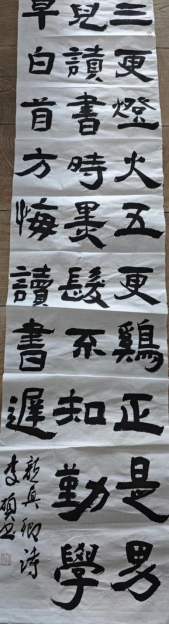 三更燈火五更鷄正是男
兒讀書時黑髮不知勤學
早白首方悔讀書遲
顏真卿詩